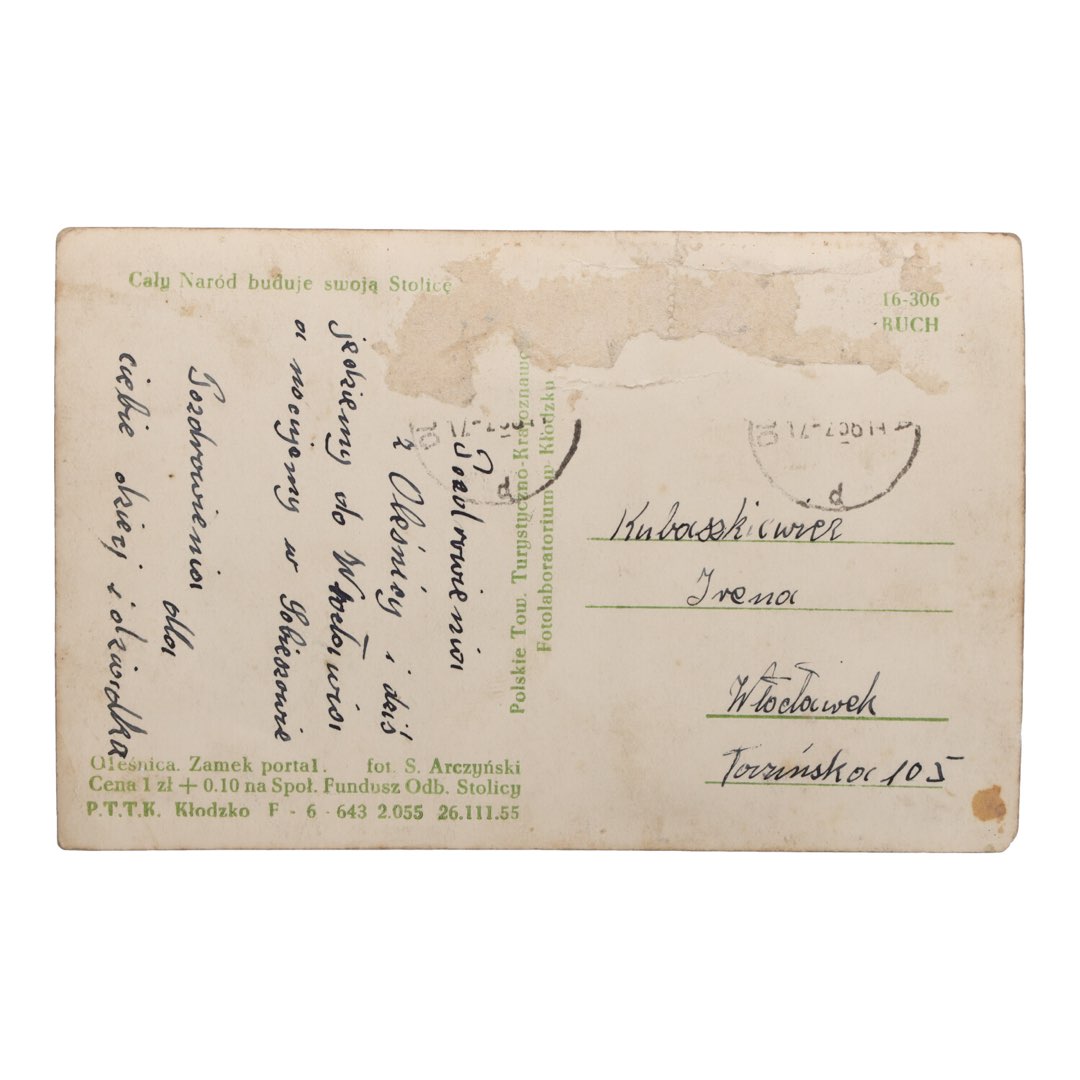 Cały Naród buduje swoją Stolicę
16-306
RUCH
Pozdrowienia
z Oleśnicy i dziś
jedziemy do Wrocławia
a nocujemy w Sobieszowie
Pozdrowienia dla
ciebie dzieci i dziadka
Polskie Tow. Turystyczno-Krajoznawcze
Fotolaboratorium w Kłodzku
Kubaszkiewicz
Irena
Włocławek
Toruńska 105
Oleśnica. Zamek portal. fot. S. Arczyński
Cena 1 zł + 0.10 na Społ. Fundusz Odb. Stolicy
P.T.T.K. Kłodzko F - 6 - 643 2.055 26.111.55